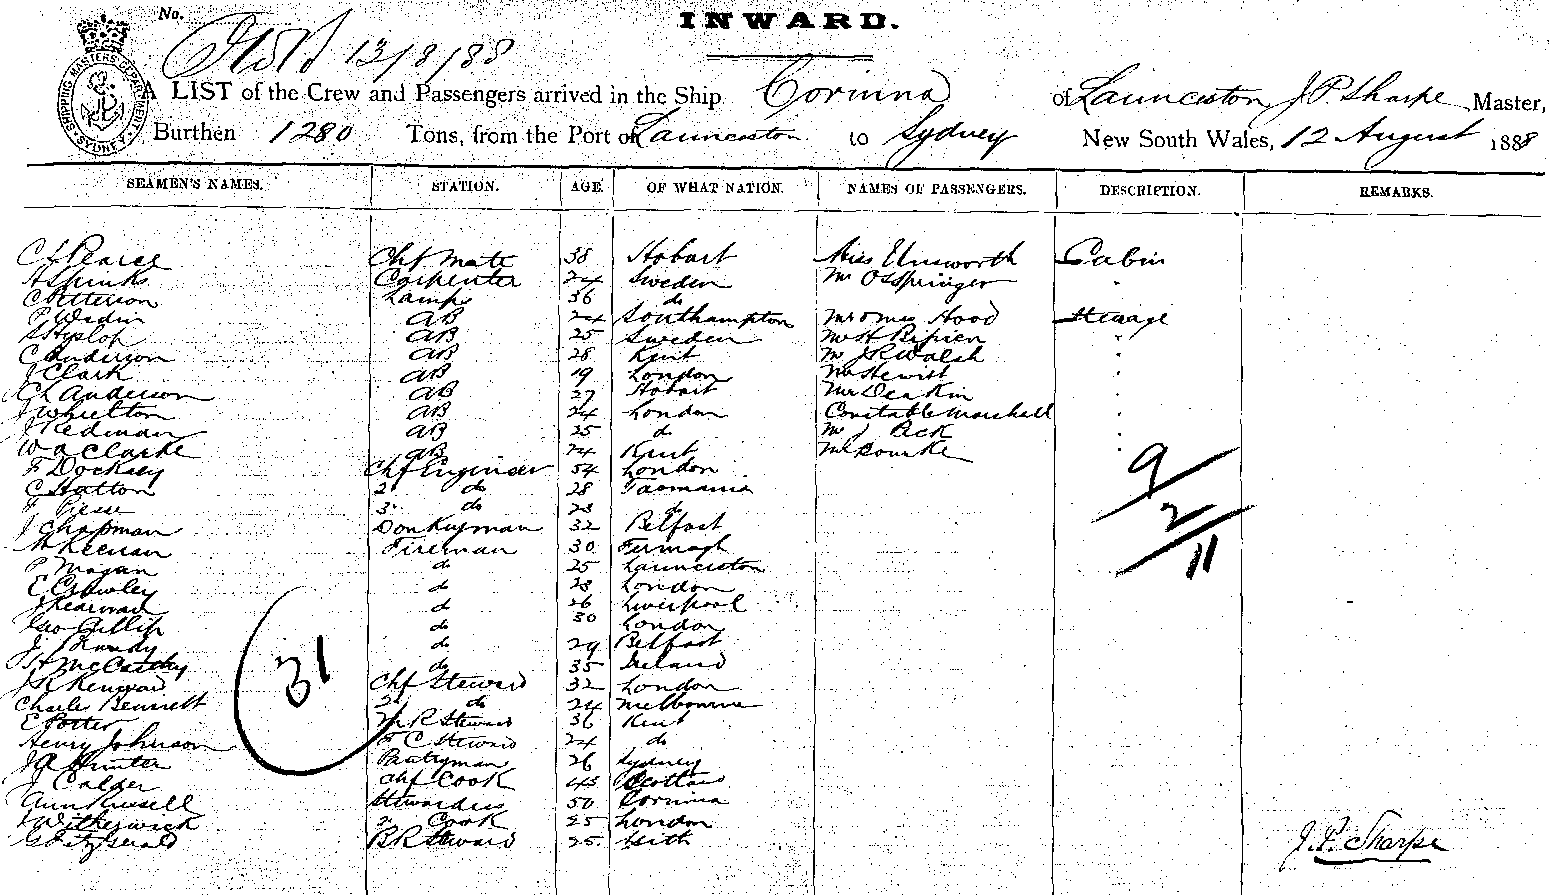 No.
INWARD.
13/8/88
SHIPPING MASTERS DEPARTMENT SYDNEY
A LIST of the Crew and Passengers arrived in the Ship Corinna of Launceston J P Sharpe Master,
Burthen 1280 Tons, from the Port of Launceston to Sydney New South Wales, 12 August 1888
SEAMEN'S NAMES. STATION. AGE. OF WHAT NATION. NAMES OF PASSENGERS. DESCRIPTION. REMARKS.
Pearce Chf Mate 38 Hobart Miss Unsworth Cabin
A Spinks Carpenter 24 Sweden Mr Osspringer "
C Petterson Lamps 36 do
P Wedin AB 24 Southampton Mr & Mrs Hood Steerage
Hyslop AB 25 Sweden Mr H "
C Anderson AB 28 Kent Mr J R Walsh "
J Clark AB 19 London Hewitt "
Anderson AB 27 Hobart Deakin "
J Whielton AB 24 London Constable Marshall "
J Redman AB 25 do Mr J Peck "
W A Clarke AB 24 Kent Mr Bourke "
F Docksey Chf Engineer 54 London 9
C Hatton 2 do 28 Tasmania
F Piesse 3 do 23 do 2
J Chapman Donkeyman 32 Belfast
M Keenan Fireman 30 11
P Magan do 25 Launceston
E Crowley do 28 London
J Kearnan do 26 Liverpool
Geo do 30 London
J do 29 Belfast
McCarthy do 35 Ireland
31
J R Kenward Chf Steward 32 London
Charles Bennett 2 do 24 Melbourne
E Potter M R Steward 36 Kent
Henry Johnson F C Steward 24 do
J A Hunter Pantryman 26 Sydney
J Calder Chf Cook 43
Ann Russell Stewardess 50 Corinna
J Witherwick 2 Cook 25 London
G Fitzgerald B R Steward 25 Leith
J. P. Sharpe